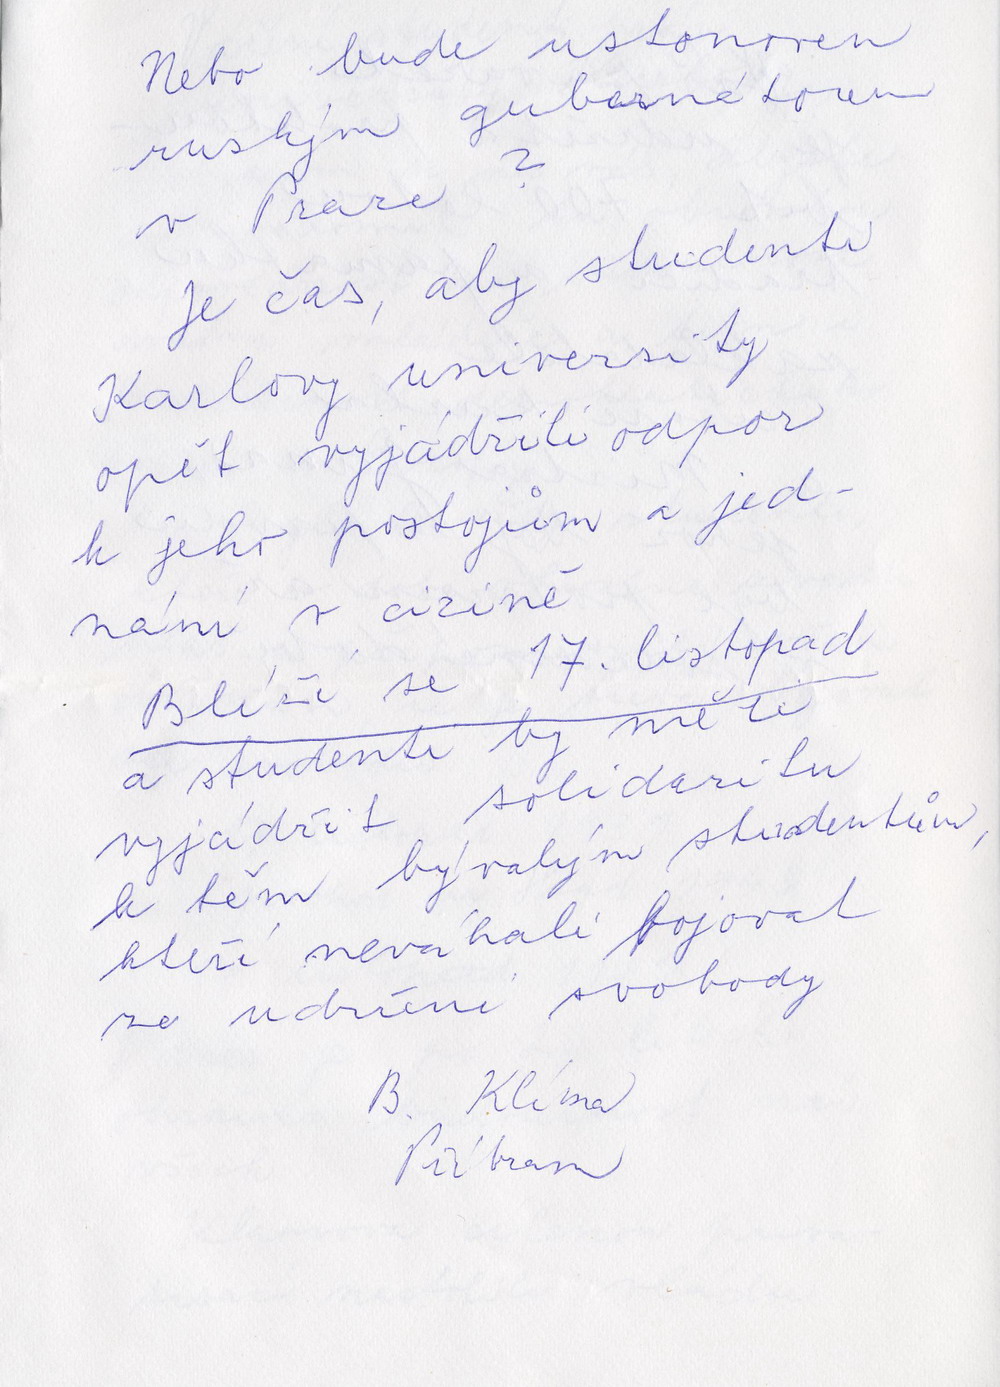 Nebo bude ustanoven
ruským gubernátorem
v Praze ?
Je čas, aby studenti
Karlovy university
opět vyjádřili odpor
k jeho postojům a jed-
nání v cizině
Blíží se 17. listopad
a studenti by měli
vyjádřit solidaritu
k těm bývalým studentům,
kteří neváhali bojovat
za udržení svobody
B. Klíma
Příbram